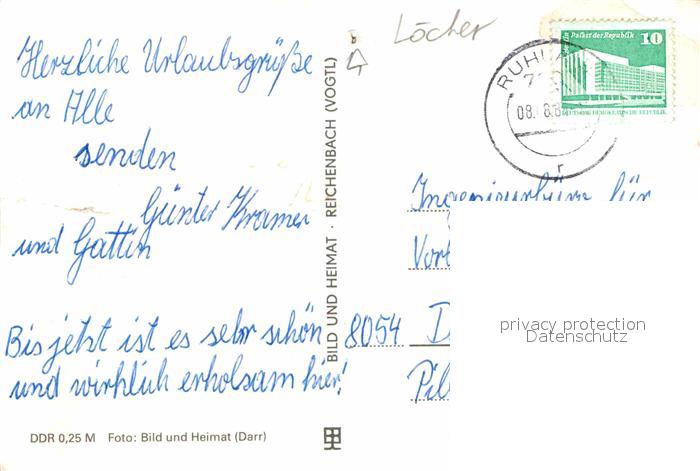 Herzliche Urlaubsgrüße
an Alle
senden
Günter Kramer
und Gattin
Bis jetzt ist es sehr schön
und wirklich erholsam hier!
DDR 0,25 M Foto: Bild und Heimat (Darr)
BILD UND HEIMAT · REICHENBACH (VOGTL)
Löcher
Palast der Republik 10
DEUTSCHE DEMOKRATISCHE REPUBLIK
RUHLA
08. 8.8
r
Ingenieurbüro für
8054
privacy protection
Datenschutz